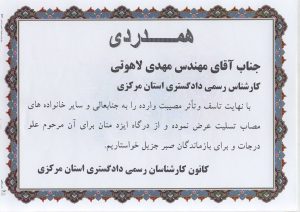 همـــدردی
جناب آقای مهندس مهدی لاهوتی
کارشناس رسمی دادگستری استان مرکزی
با نهایت تاسف وتأثر مصیبت وارده را به جنابعالی و سایر خانواده های
مصاب تسلیت عرض نموده و از درگاه ایزد منان برای آن مرحوم علو
درجات و برای بازماندگان صبر جزیل خواستاریم.
کانون کارشناسان رسمی دادگستری استان مرکزی